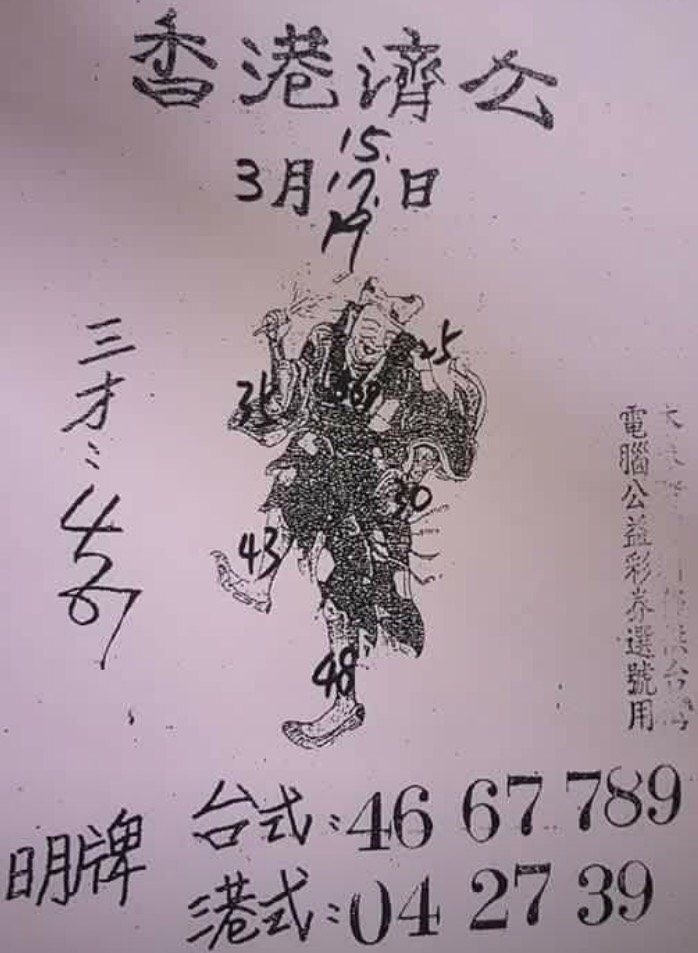 香港濟公
15.
3月17.日
19
三才:
4
6
7
35
25
369
30
43
48
電腦公益彩券選號用
台灣
明牌
台式:46 67 789
港式:04 27 39